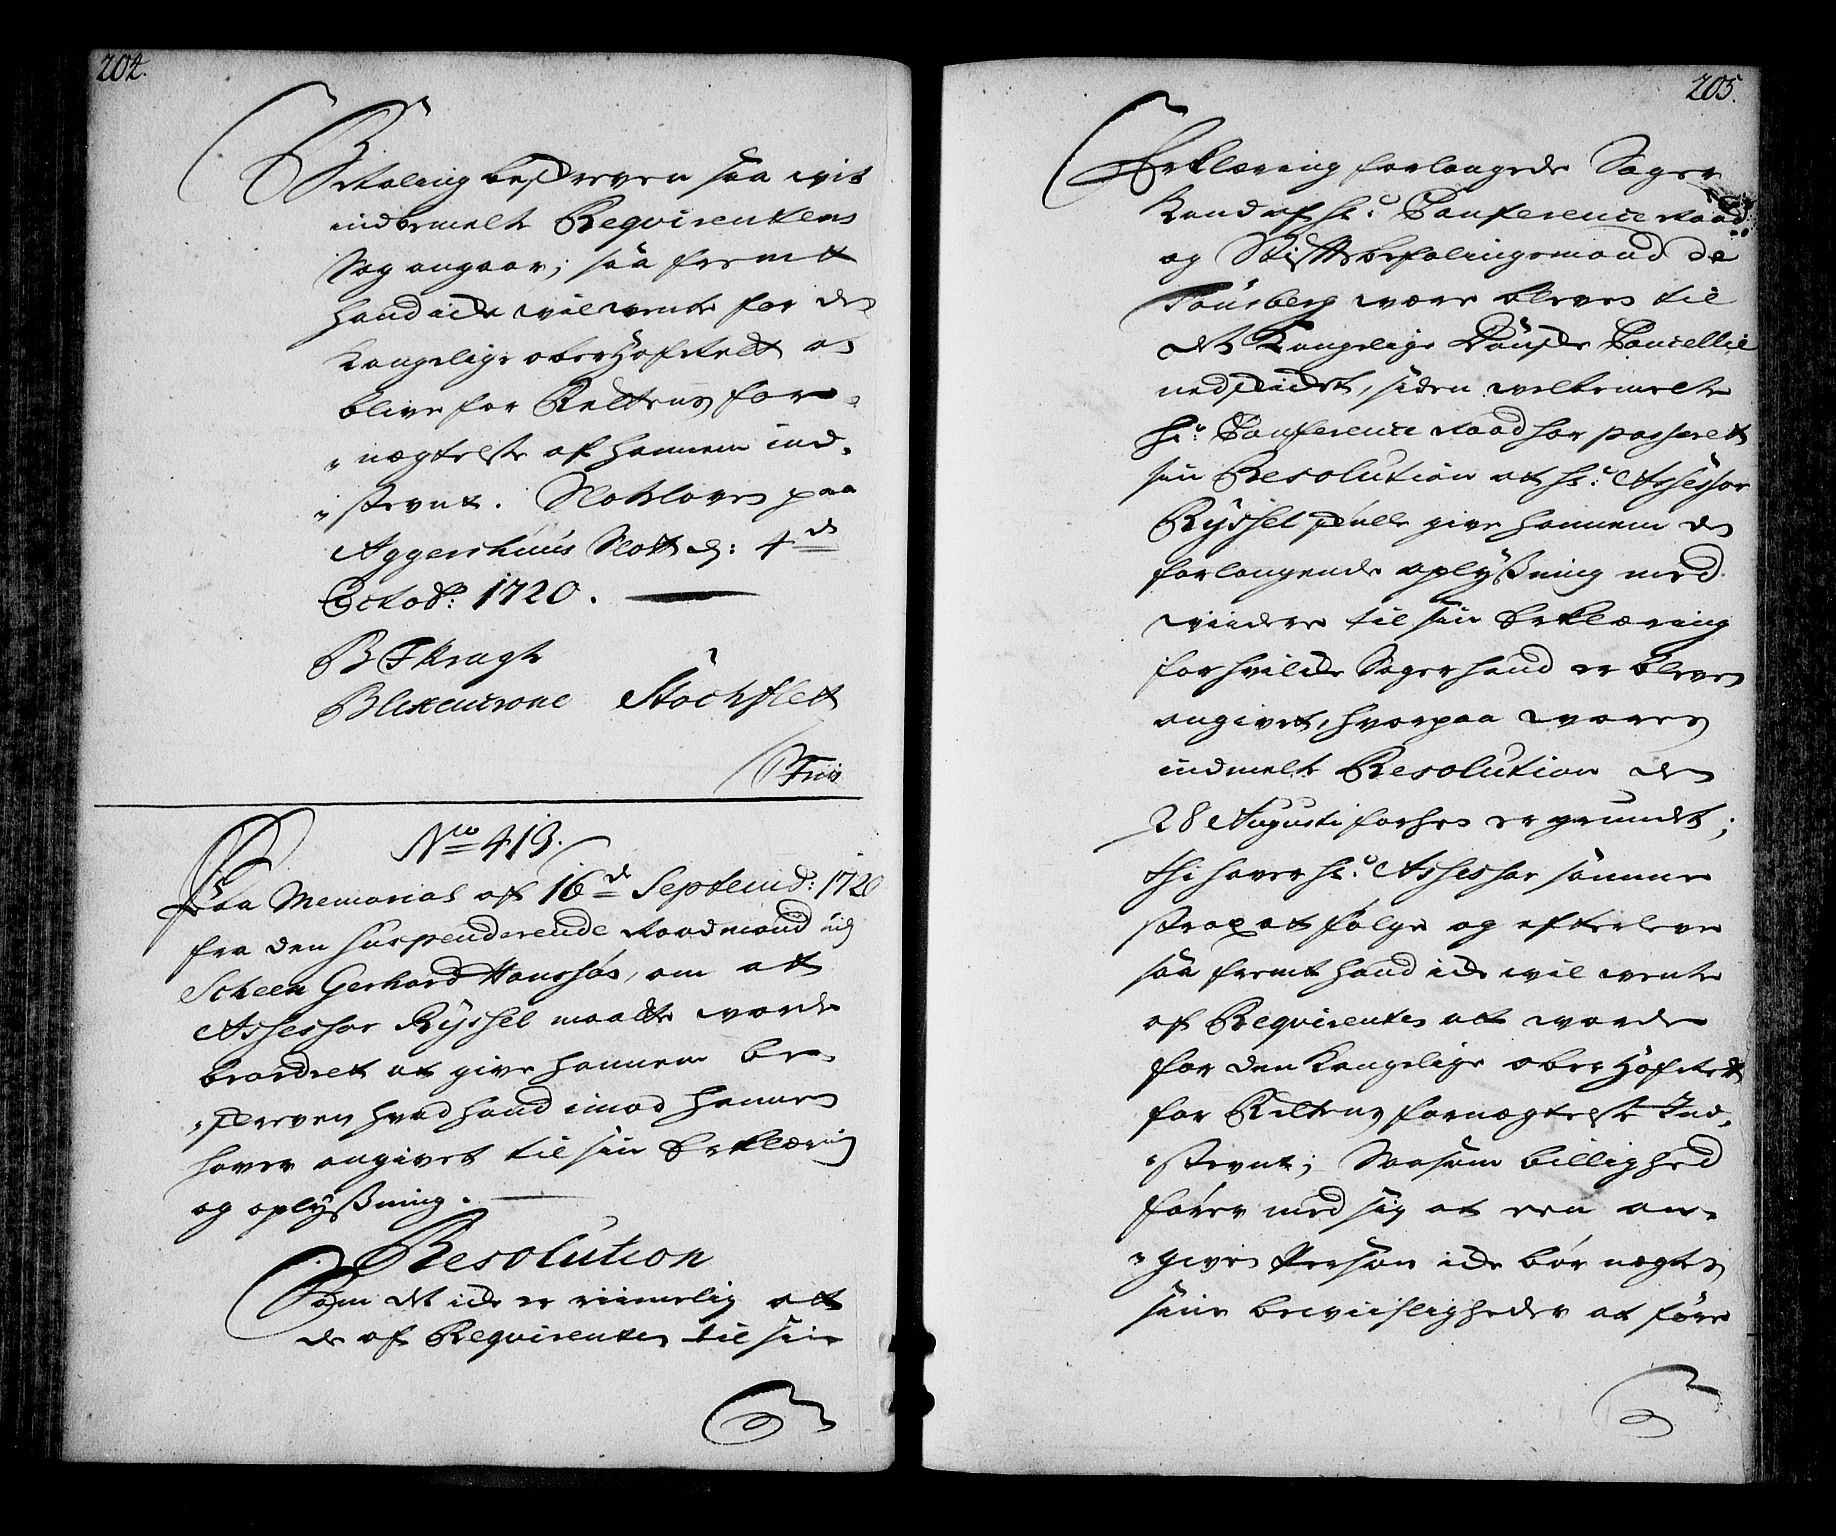 204.
Betaling beskreven saa vit
indbemelte Reqvirentens
Sag angaar; saa fremt
hand icke vil vente for det
Kongelige ober Hof Rett at
blive for Rettens for-
nægtelse af hannem ind-
stevnt. Slotsloven paa
Aggershuus Slott d: 4de
Octobr: 1720.
B F Kragh
Blixencrone Stochflett
/ T Friis
No 413.
Paa Memorial af 16de Septemb: 1720
fra den suspenderende Raadmand udj
Scheen Gerhard Hanssøn, om att
Assessor Ryssel maatte worde
beordret at give hannem be-
skreven hvad hand imod hannem
haver angivet til sin Erklæring
og oplysning.
Resolution
Som det icke er riimelig att
de af Reqvirenten til sin
205.
Erklæring forlangede Sager
kand af Hr: Conference Raad
og Stiftsbefalingsmand de
Tonsberg være bleven til
det Kongelige Danske Cancellie
nedskicket, siden welbemelte
Hr: Conference Raad har passeret
sin Resolution at Hr: Assessor
Ryssel skulle give hannem de
forlangende oplysning med
viidere til sin Erklæring
for hvilcke Sager hand er bleven
angivet, hvorpaa wores
indmelte Resolution den
28 Augusti forhen er grundet;
thi haver Hr: Assessor samme
strax at følge og efterleve
saa fremt hand icke wil vente
af Reqvirenten att worde
for den Kongelige ober Hof Rett
for Rettens fornægtelse Ind-
stevnt; Saasom billighed
fører med sig at een an-
given Person icke bør nægtes
sine beviisligheder at føre